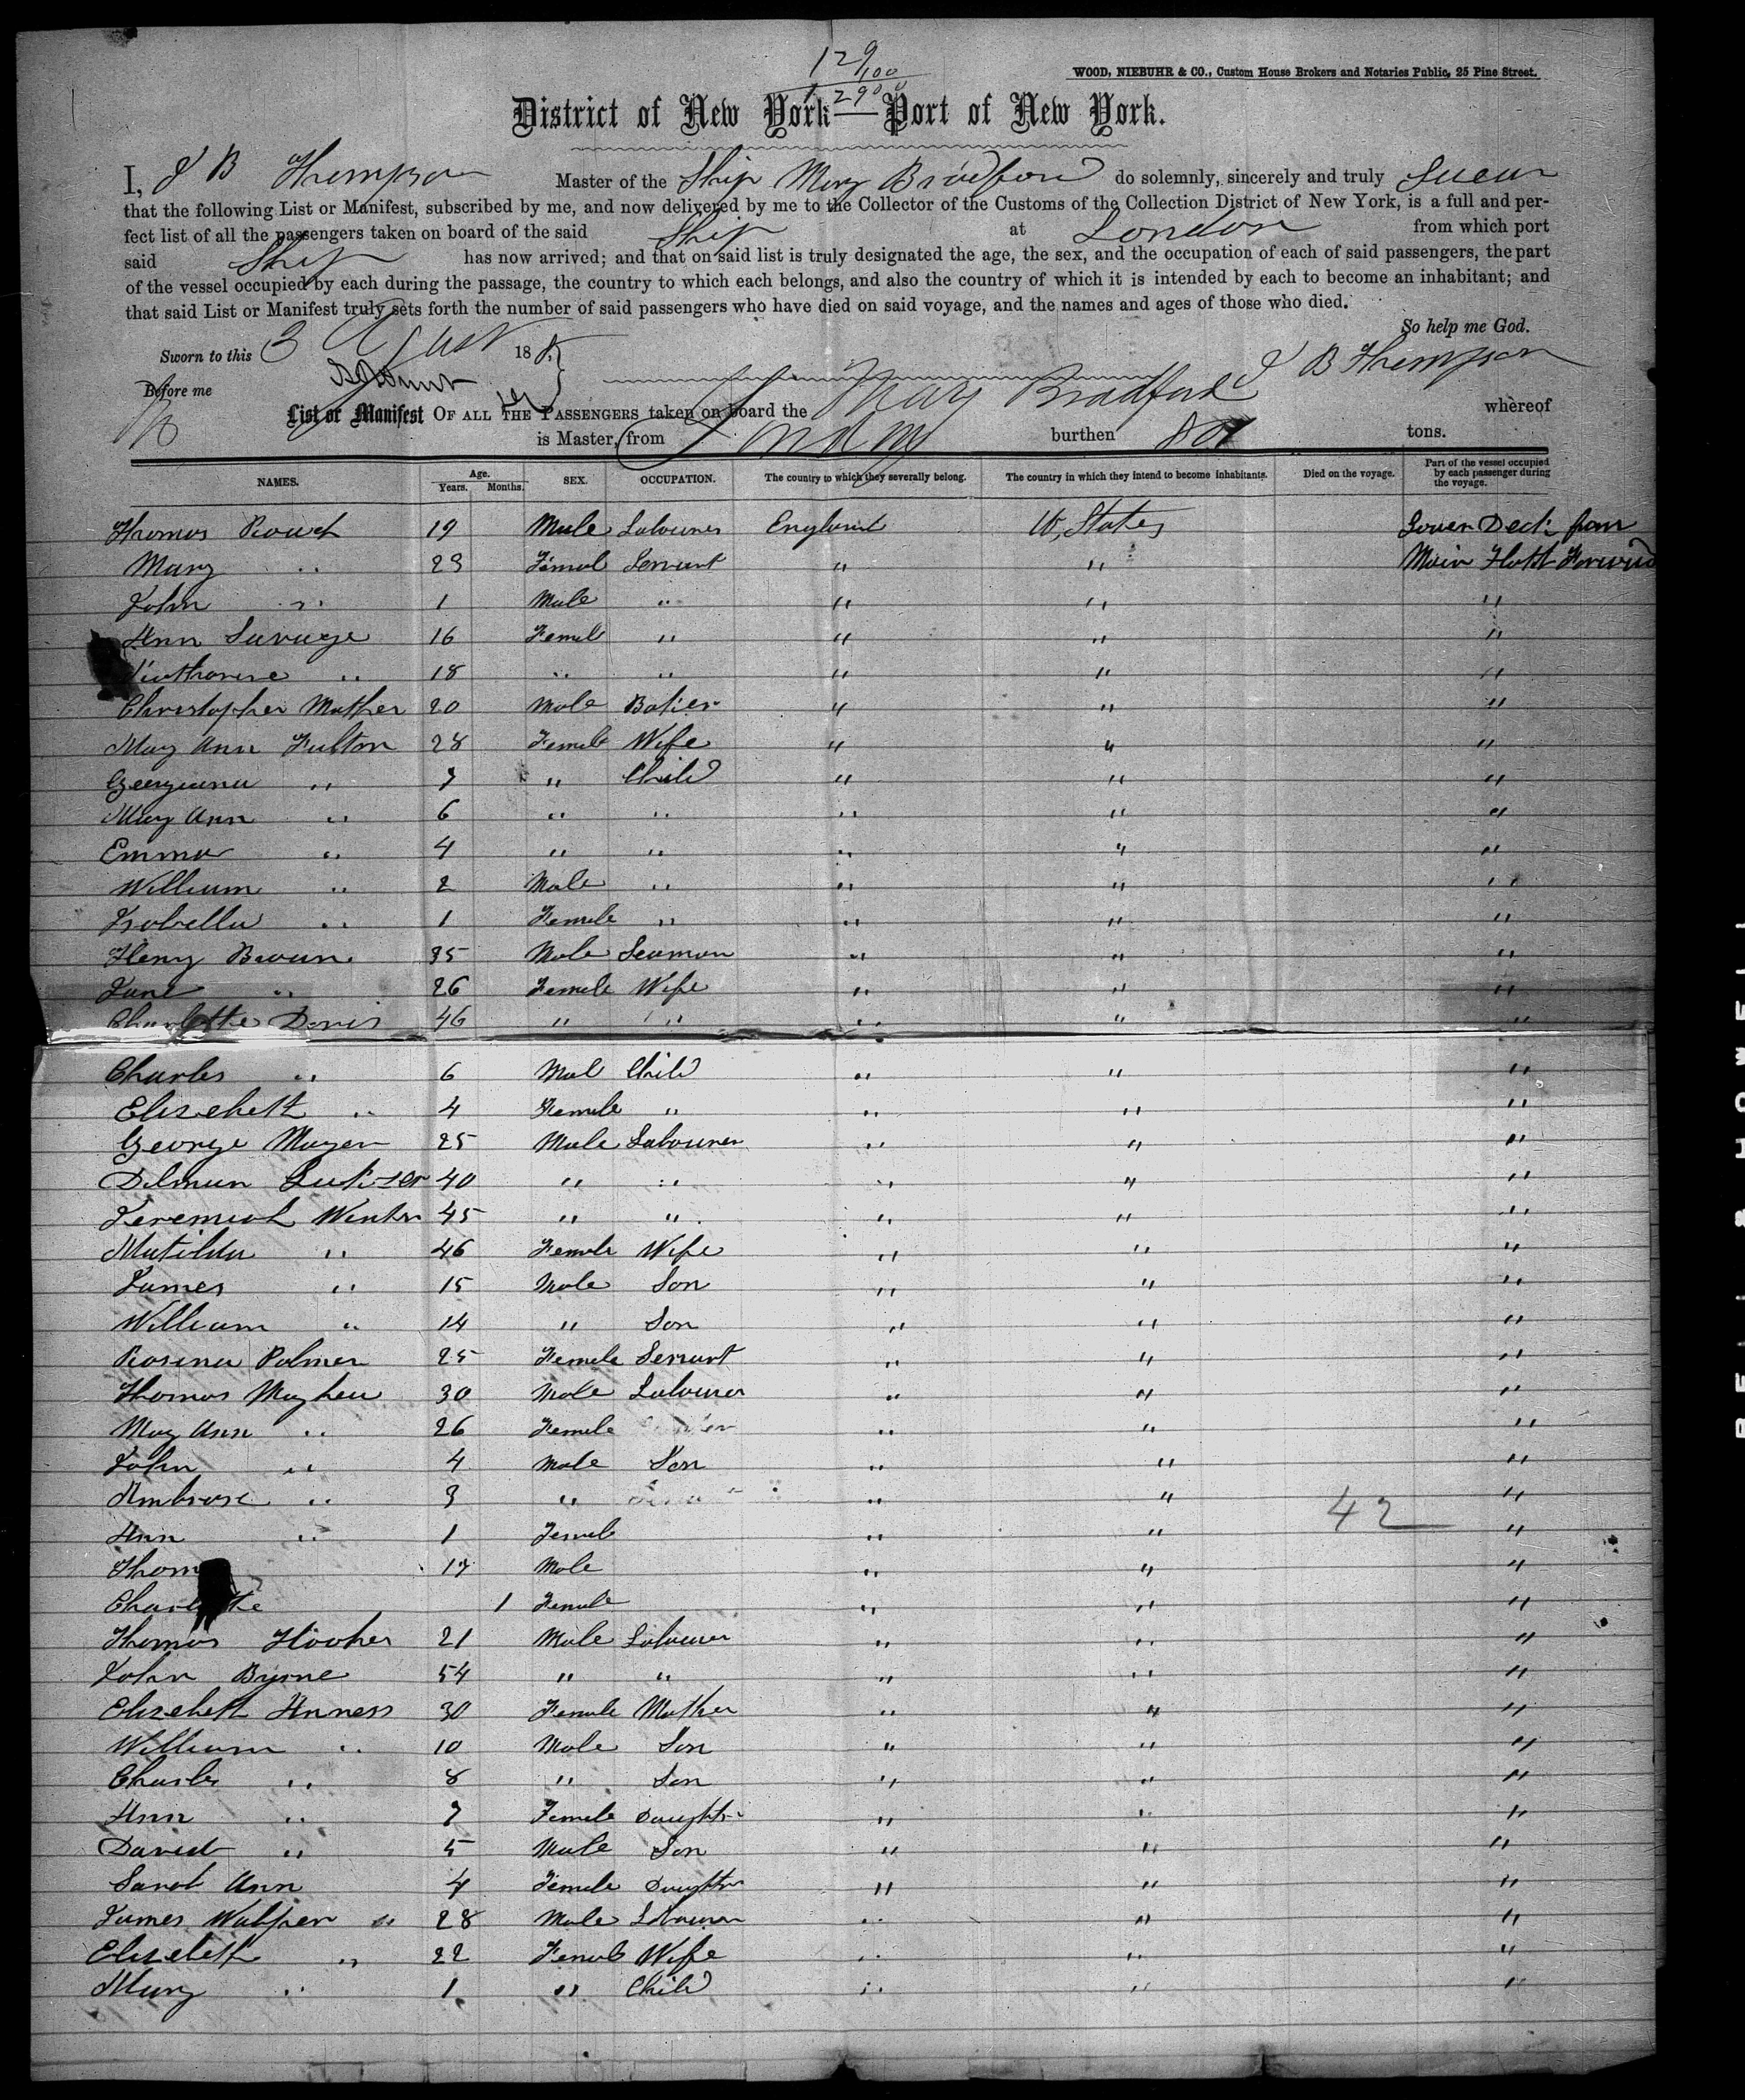 129/100
WOOD, NIEBUHR & CO., Custom House Brokers and Notaries Public, 25 Pine Street.
District of New York—Port of New York.
I, J B Thompson Master of the Ship Mary Bradford do solemnly, sincerely and truly Swear
that the following List or Manifest, subscribed by me, and now delivered by me to the Collector of the Customs of the Collection District of New York, is a full and per-
fect list of all the passengers taken on board of the said Ship at London from which port
said Ship has now arrived; and that on said list is truly designated the age, the sex, and the occupation of each of said passengers, the part
of the vessel occupied by each during the passage, the country to which each belongs, and also the country of which it is intended by each to become an inhabitant; and
that said List or Manifest truly sets forth the number of said passengers who have died on said voyage, and the names and ages of those who died.
So help me God.
Sworn to this 3 August 18
J B Thompson
Before me
List or Manifest OF ALL THE PASSENGERS taken on board the Mary Bradford whereof
is Master, from London burthen tons.
NAMES. Age. Years. Months. SEX. OCCUPATION. The country to which they severally belong. The country in which they intend to become inhabitants. Died on the voyage. Part of the vessel occupied by each passenger during the voyage.
Thomas Rouch 19 Male Labourer England U. States Lower Deck from
Mary " 23 Femal Servant " " Main Hatch Forward
John " 1 Male " " " "
Ann Savage 16 Femal " " " "
" 18 " " " " "
Christopher Mather 20 Male Baker " " "
Mary Ann Fulton 28 Female Wife " " "
Georgiana " 7 " Child " " "
Mary Ann " 6 " " " " "
Emma " 4 " " " " "
William " 2 Male " " " "
Isabella " 1 Female " " " "
Henry Brown 35 Male Seaman " " "
Jane " 26 Female Wife " " "
Charlotte Davis 46 " " " " "
Charles " 6 Mal Child " " "
Elizabeth " 4 Female " " " "
George Mayer 25 Male Labourer " " "
40 " " " " "
Jeremiah Winter 45 " " " " "
Matilda " 46 Female Wife " " "
James " 15 Male Son " " "
William " 14 " Son " " "
Rosina Palmer 25 Female Servant " " "
Thomas Mayhew 30 Male Labourer " " "
May Ann " 26 Female " " "
John " 4 Male Son " " "
Ambrose " 3 " " " 42 "
Ann " 1 Femal " " "
Thom 17 Male " " "
Charlotte 1 Female " " "
Thomas Hooker 21 Male Labourer " " "
John Byrne 54 " " " " "
Elizabeth Anness 30 Female Mother " " "
William " 10 Male Son " " "
Charles " 8 " Son " " "
Ann " 7 Female Daughter " " "
David " 5 Male Son " " "
Sarah Ann 4 Female Daughter " " "
James Walker " 28 Male Labourer " " "
Elizabeth " 22 Female Wife " " "
Mary " 1 " Child " " "